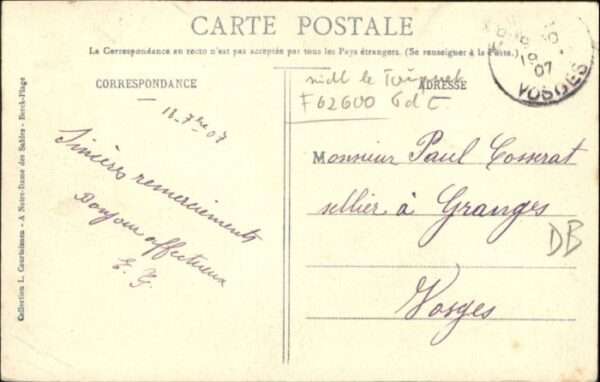 CARTE POSTALE
La Correspondance au recto n'est pas acceptée par tous les Pays étrangers. (Se renseigner à la Poste.)
CORRESPONDANCE
ADRESSE
le Touquet
F 62600
18-7bre 07
Sincères remerciements
Bonjour affectueux
E. G.
Monsieur Paul Cosserat
sellier à Granges
Vosges
DB
19
07
VOSGES
Collection L. Courteisson - A Notre-Dame des Sables - Berck-Plage